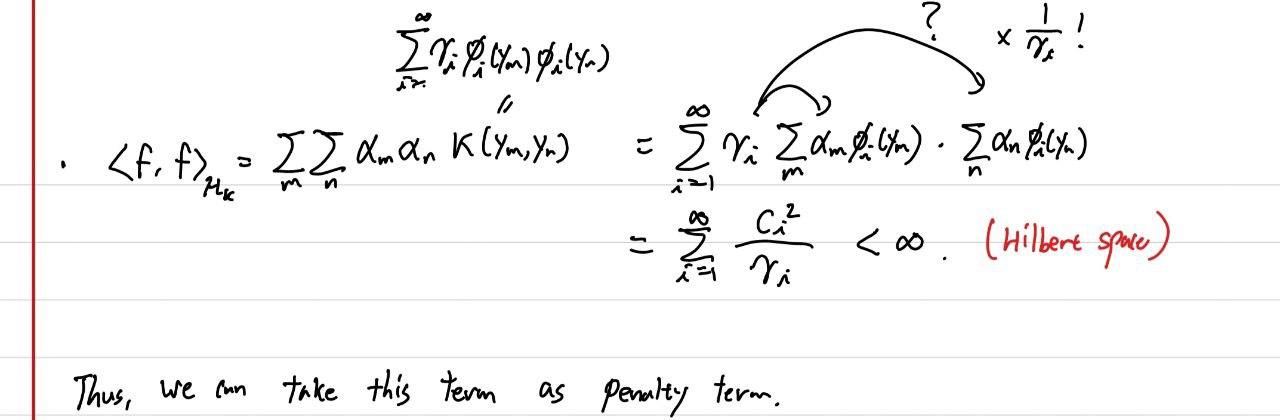 ∞
∑ γᵢ ϕᵢ(yₘ) ϕᵢ(yₙ)
i=1
? × 1/γᵢ !
· ⟨f, f⟩_{H_K} = ∑ₘ ∑ₙ αₘ αₙ K(yₘ, yₙ) = ∑_{i=1}^{∞} γᵢ ∑ₘ αₘ ϕᵢ(yₘ) · ∑ₙ αₙ ϕᵢ(yₙ)
= ∑_{i=1}^{∞} cᵢ²/γᵢ < ∞. (Hilbert space)
Thus, we can take this term as penalty term.